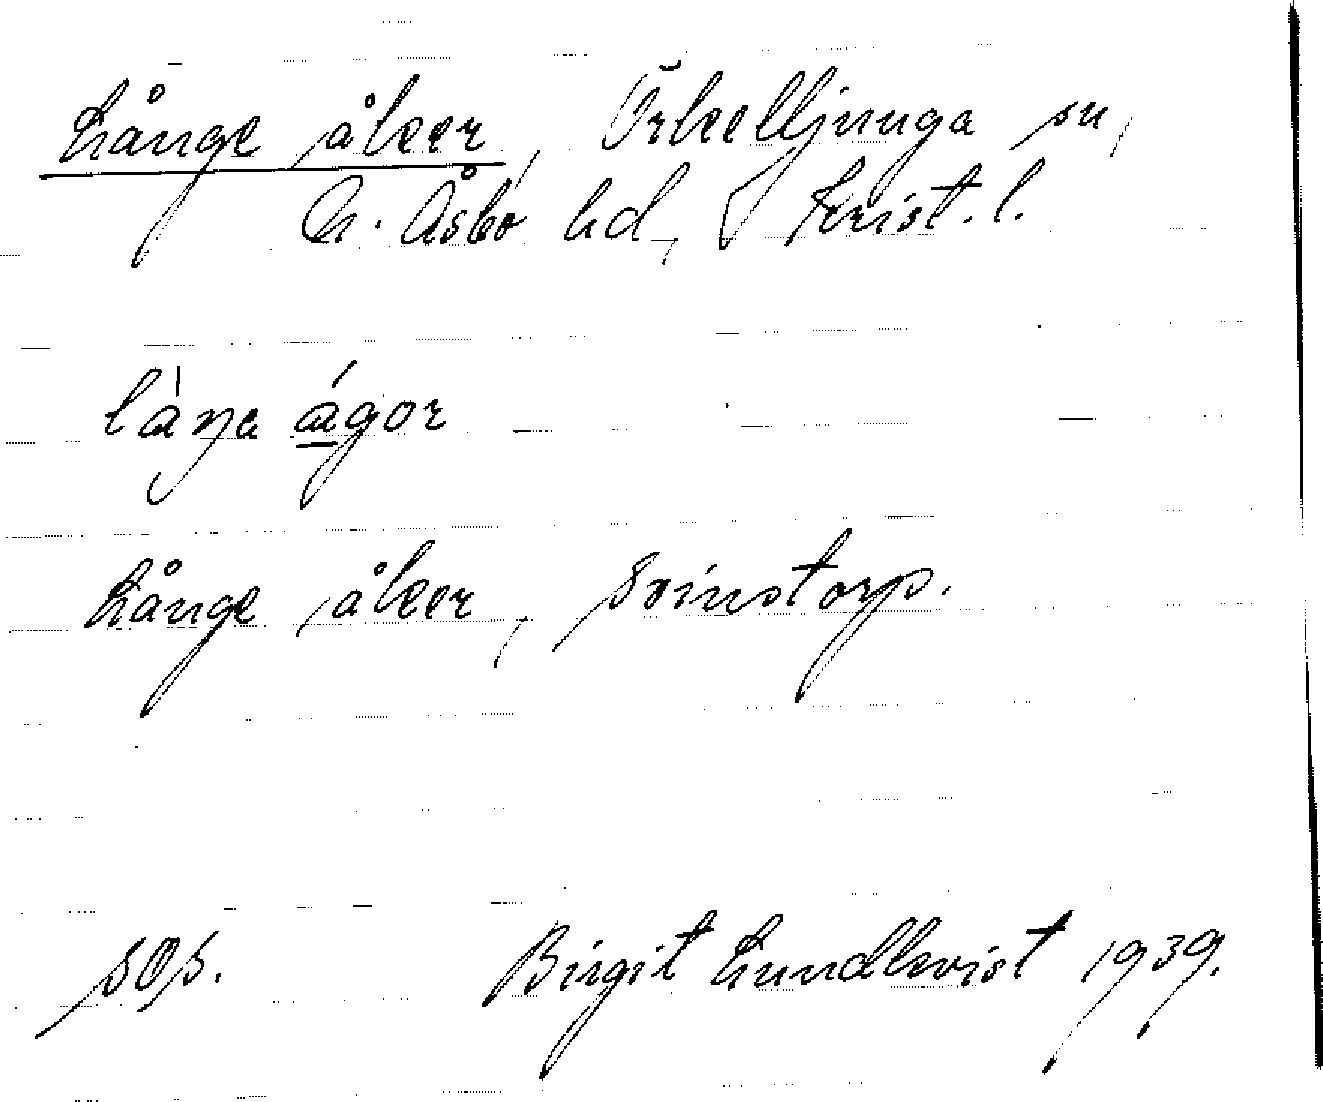 Långe åker, Örkelljunga sn,
N. Åsbo hd, Krist. l.
låŋa ágor
Långe åker, Svinstorp.
sos. Birgit Lundkvist 1939.